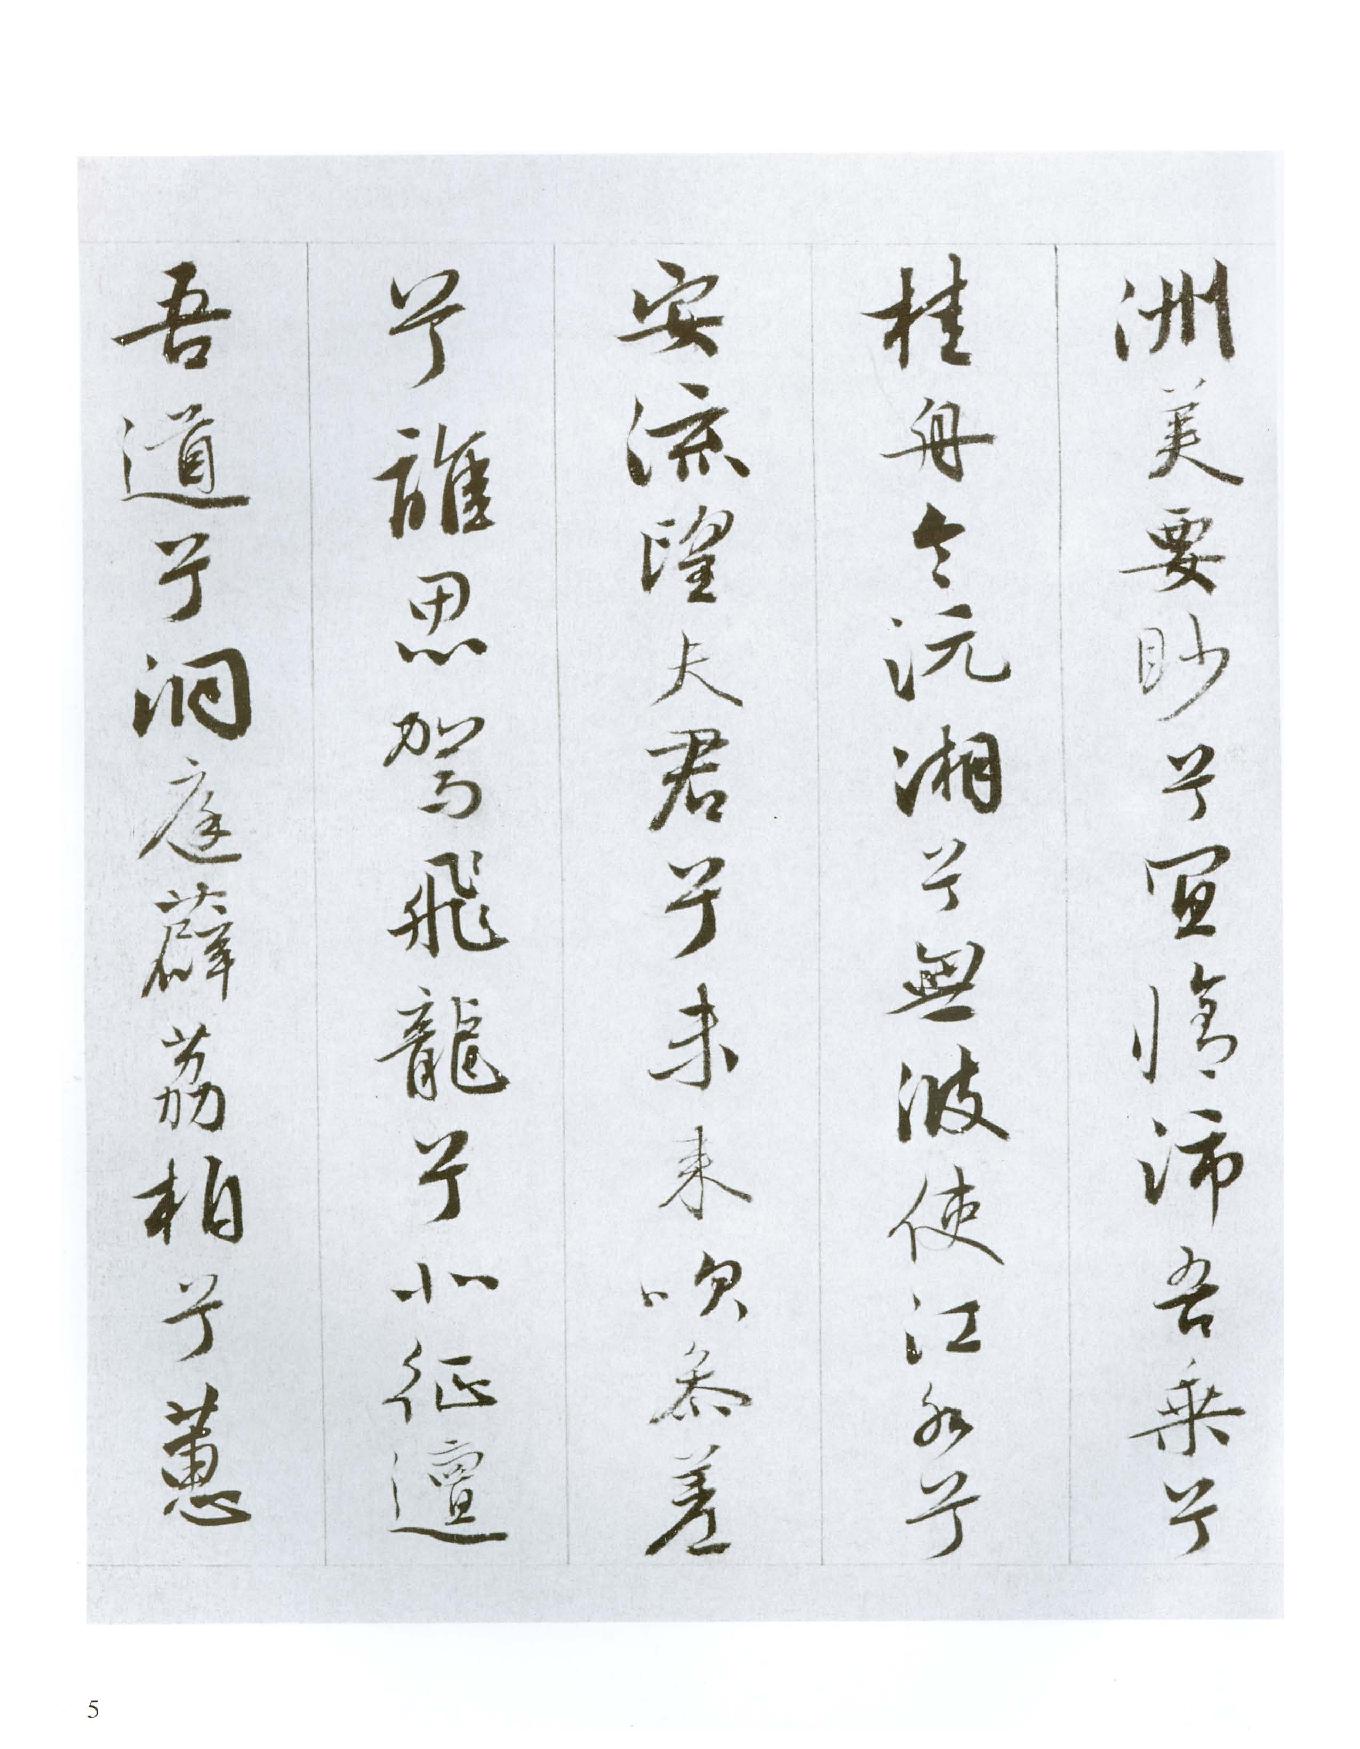 洲美要眇兮宜脩沛吾乘兮
桂舟令沅湘兮無波使江水兮
安流望夫君兮未来吹參差
兮誰思駕飛龍兮北征邅
吾道兮洞庭薜荔柏兮蕙
5